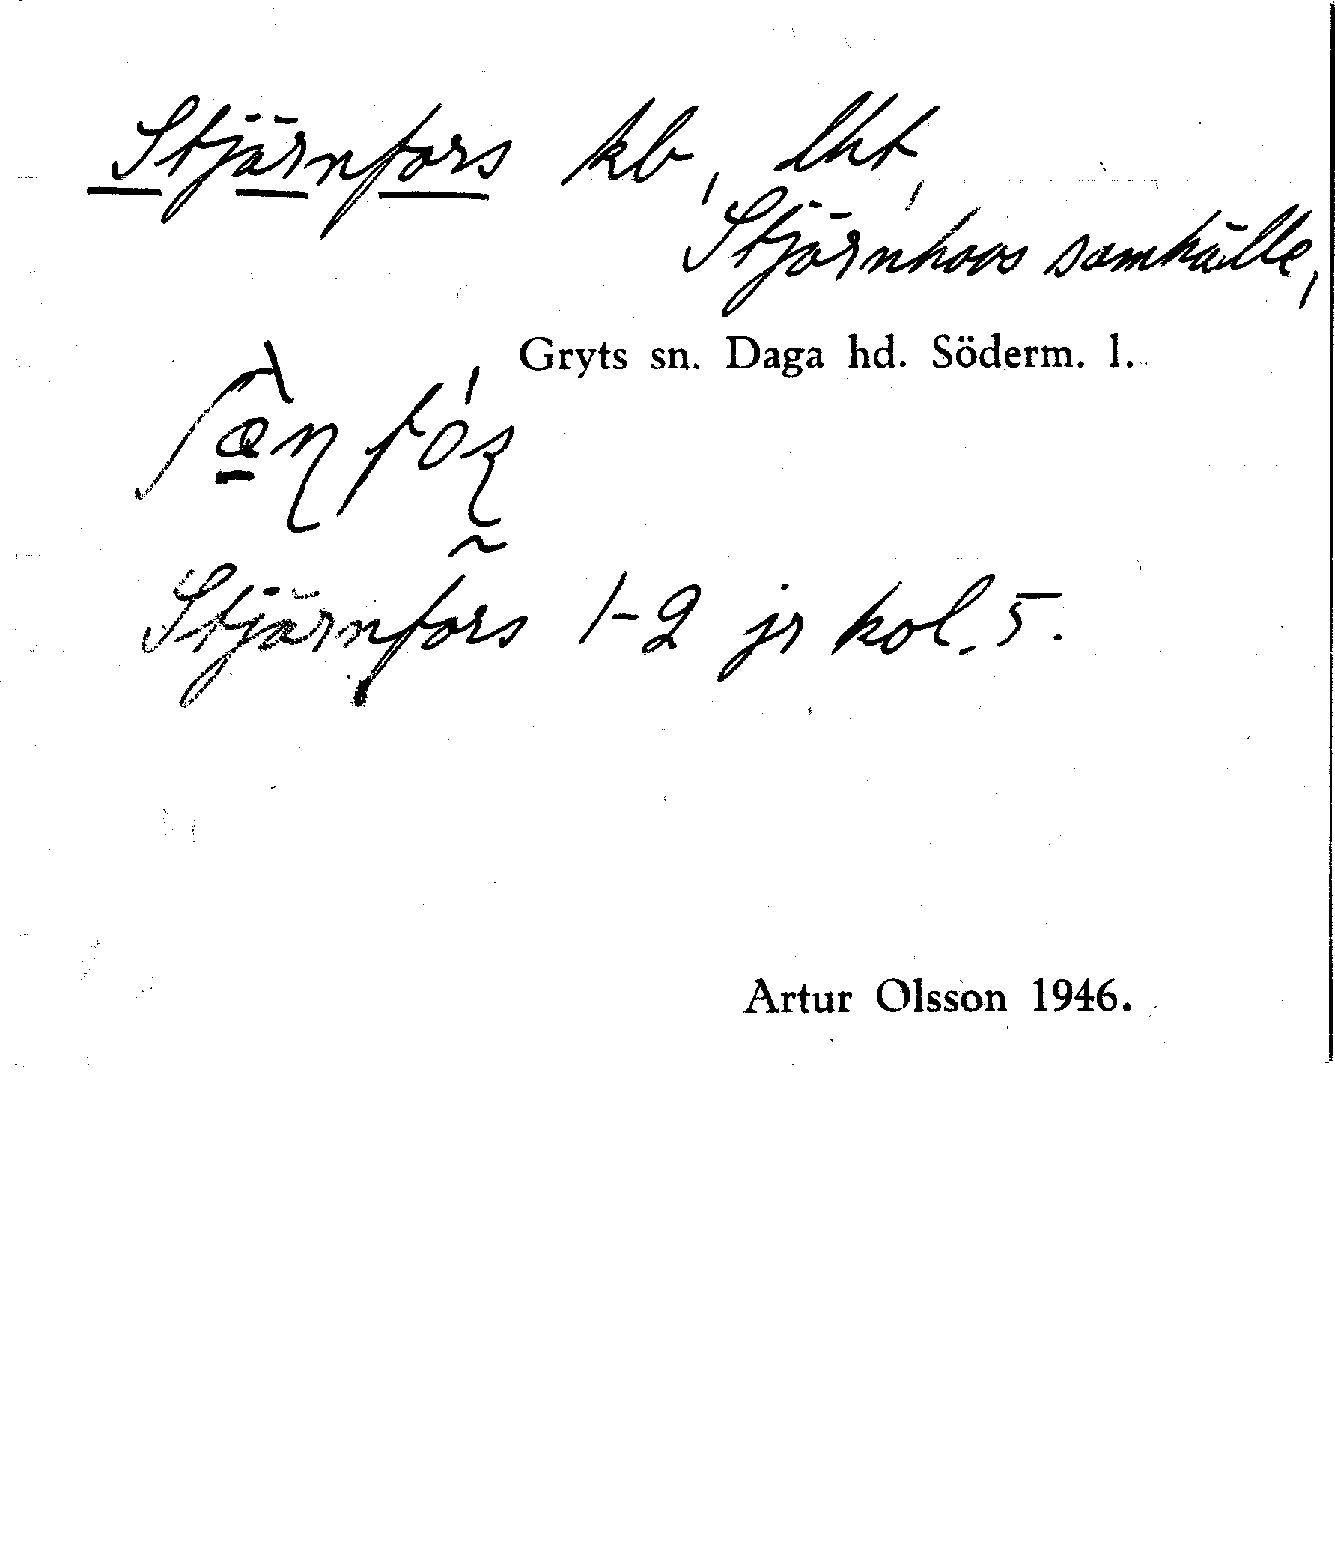 Stjärnfors kb, lht,
Stjärnhovs samhälle,
Gryts sn. Daga hd. Söderm. l.
Stjärnfors 1-2 jr kol. 5.
Artur Olsson 1946.